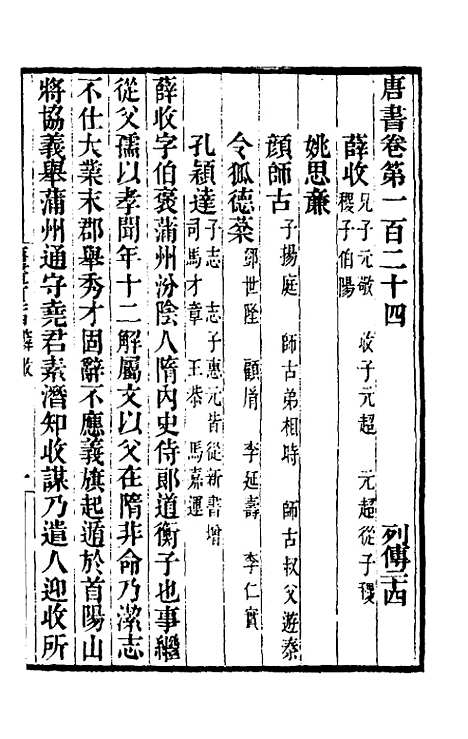 唐書卷第一百二十四　列傳二十四
薛收 兄子元敬　收子元超　元超從子稷
稷子伯陽
姚思廉
顔師古 子揚庭　師古弟相時　師古叔父遊秦
令狐德棻 鄧世隆　顧胤　李延壽　李仁實
孔穎達 子志　志子惠元皆從新書增
司馬才章　王恭　馬嘉運
薛收字伯褒蒲州汾陰人隋內史侍郎道衡子也事繼
從父孺以孝聞年十二解屬文以父在隋非命乃潔志
不仕大業末郡舉秀才固辭不應義旗起遁於首陽山
將協義舉蒲州通守堯君素潛知收謀乃遣人迎收所